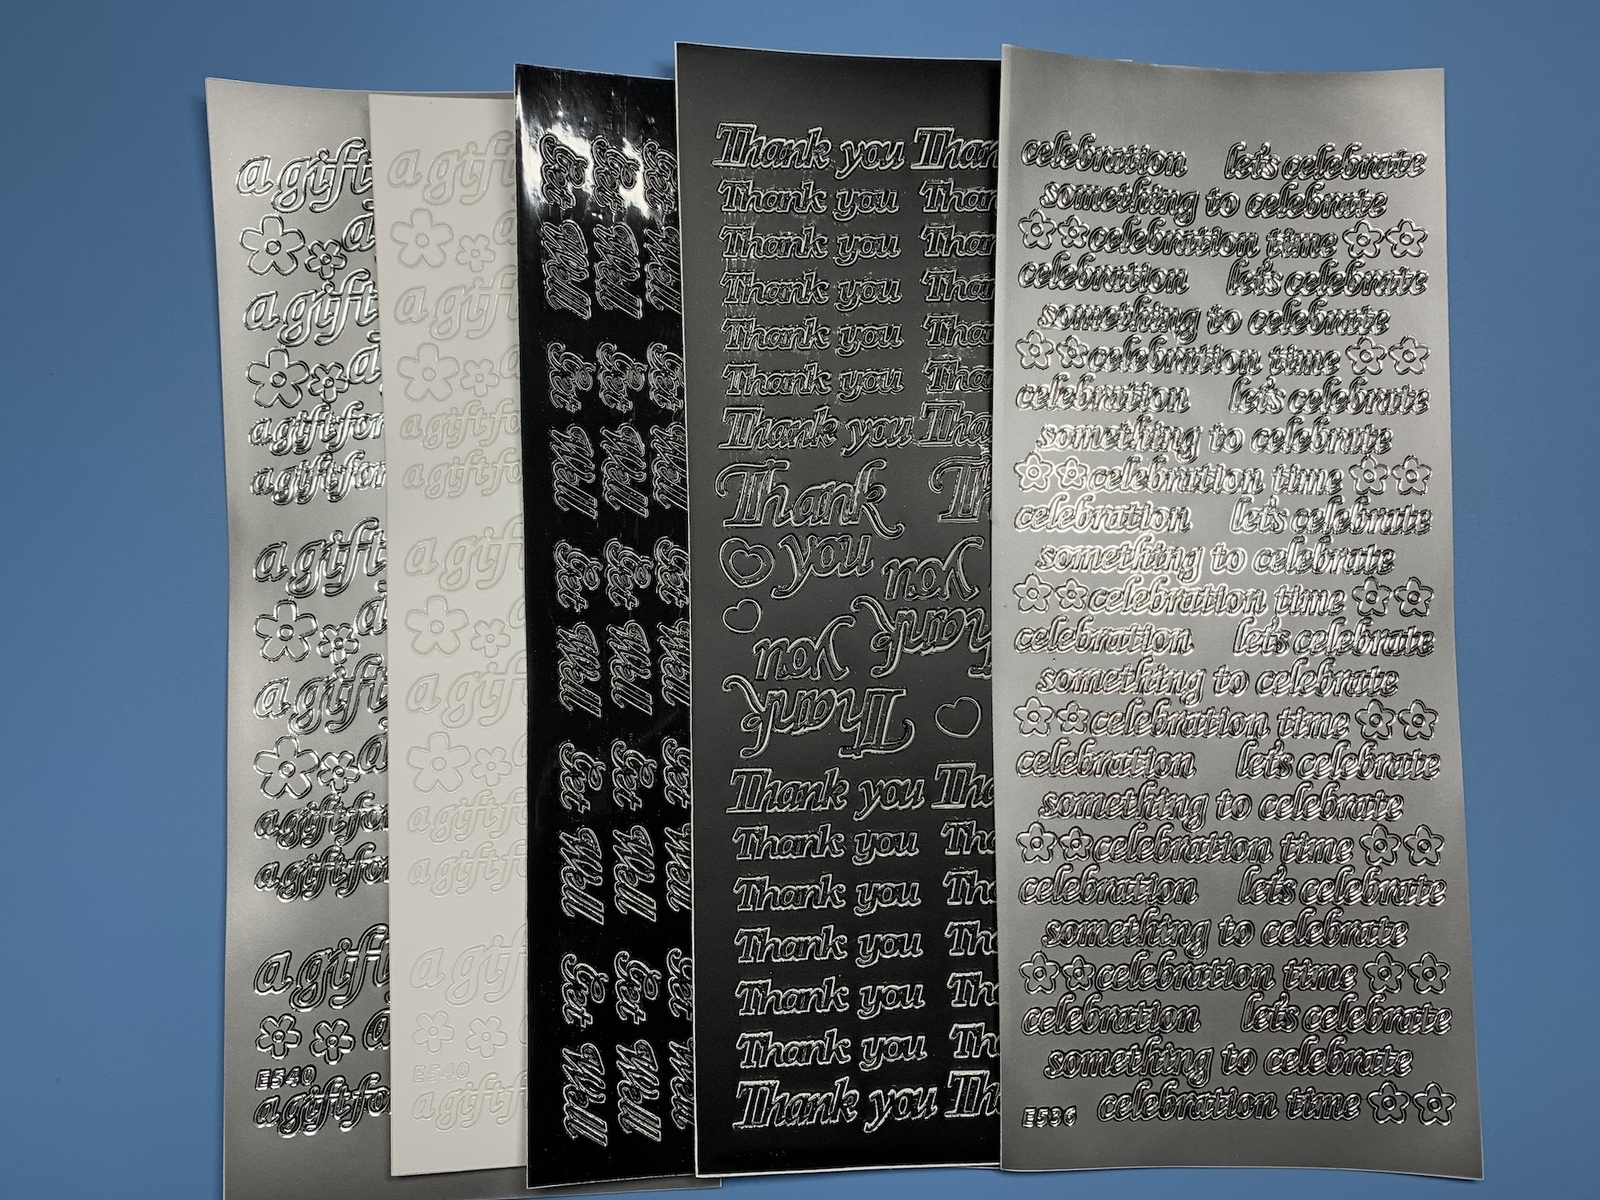 a gift
a
a gift
a
a gift for
a gift for
a gift
a
a gift
a
a gift for
a gift for
a gift
a
E540
a gift fo
a gift
a
a gift
a
a gift fo
a gift fo
a gift
a
a gift
a
a gift fo
a gift fo
a gift
E540
a gift fo
Get Well Get Well Get Well Get Well Get Well
Get Well Get Well Get Well Get Well Get Well
Get Well Get Well Get Well Get Well Get Well
Thank you Than
Thank you Than
Thank you Than
Thank you Than
Thank you Than
Thank you Than
Thank you Tha
Thank Th
you
Thank you
Thank you
Thank you Tha
Thank you Tha
Thank you Tha
Thank you Tha
Thank you Tha
Thank you Th
Thank you Tha
celebration let's celebrate
something to celebrate
celebration time
celebration let's celebrate
something to celebrate
celebration time
celebration let's celebrate
something to celebrate
celebration time
celebration let's celebrate
something to celebrate
celebration time
celebration let's celebrate
something to celebrate
celebration time
celebration let's celebrate
something to celebrate
celebration time
celebration let's celebrate
something to celebrate
celebration time
celebration let's celebrate
something to celebrate
E536 celebration time